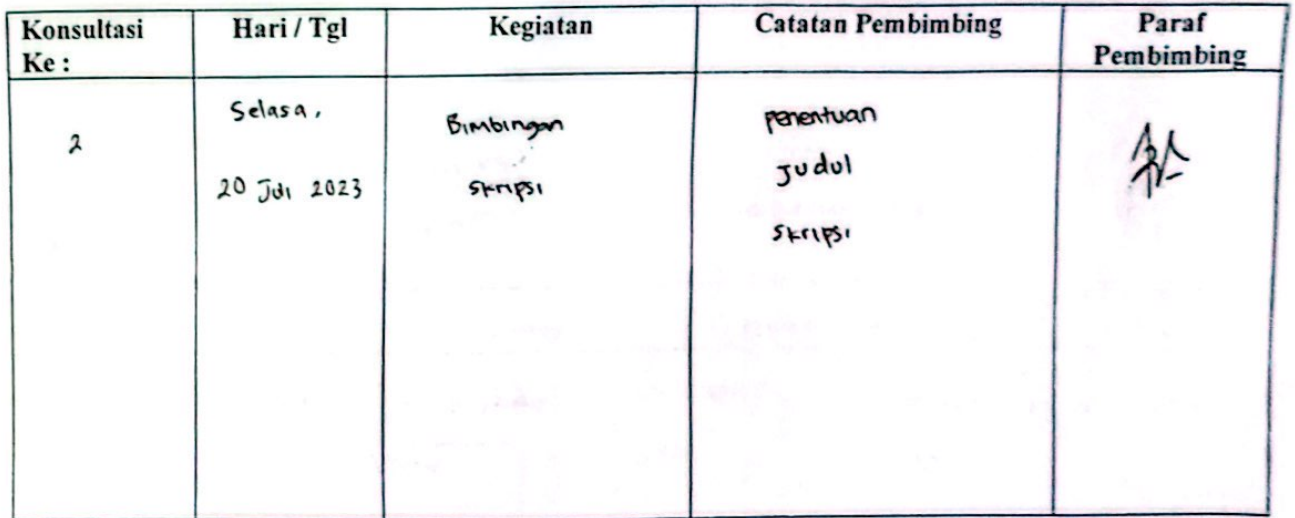 Konsultasi Ke :
Hari / Tgl
Kegiatan
Catatan Pembimbing
Paraf Pembimbing
2
Selasa,
20 Juli 2023
Bimbingan
Skripsi
penentuan
Judul
Skripsi